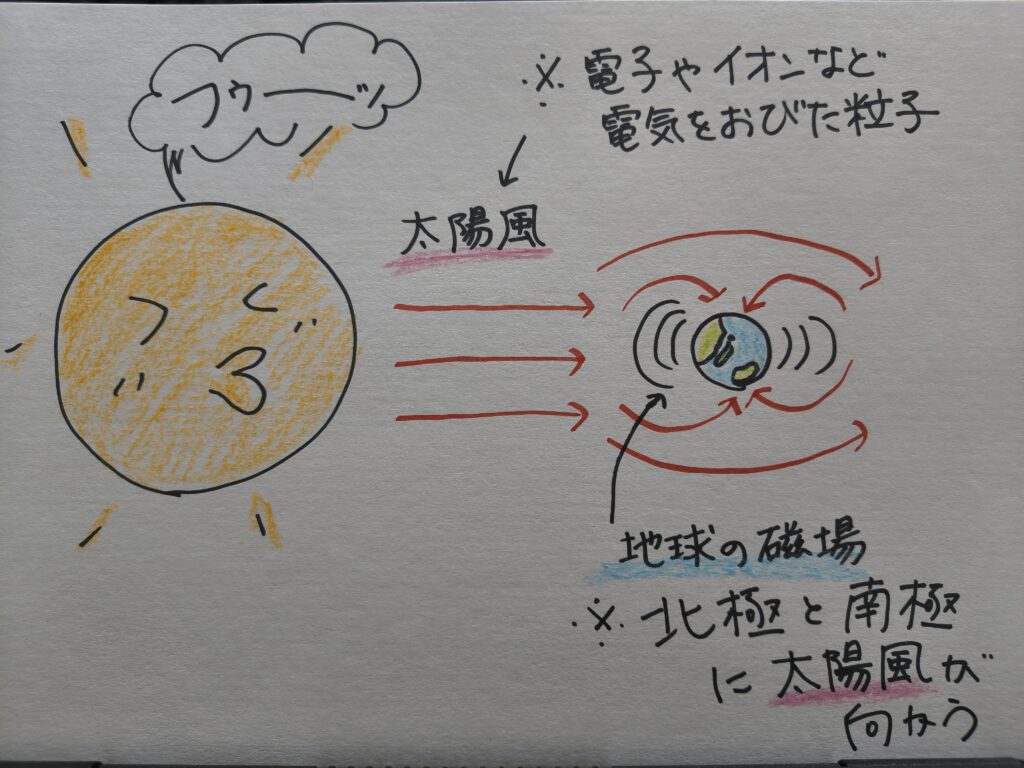 フゥーーッ
※電子やイオンなど
電気をおびた粒子
太陽風
地球の磁場
※北極と南極
に太陽風が
向かう